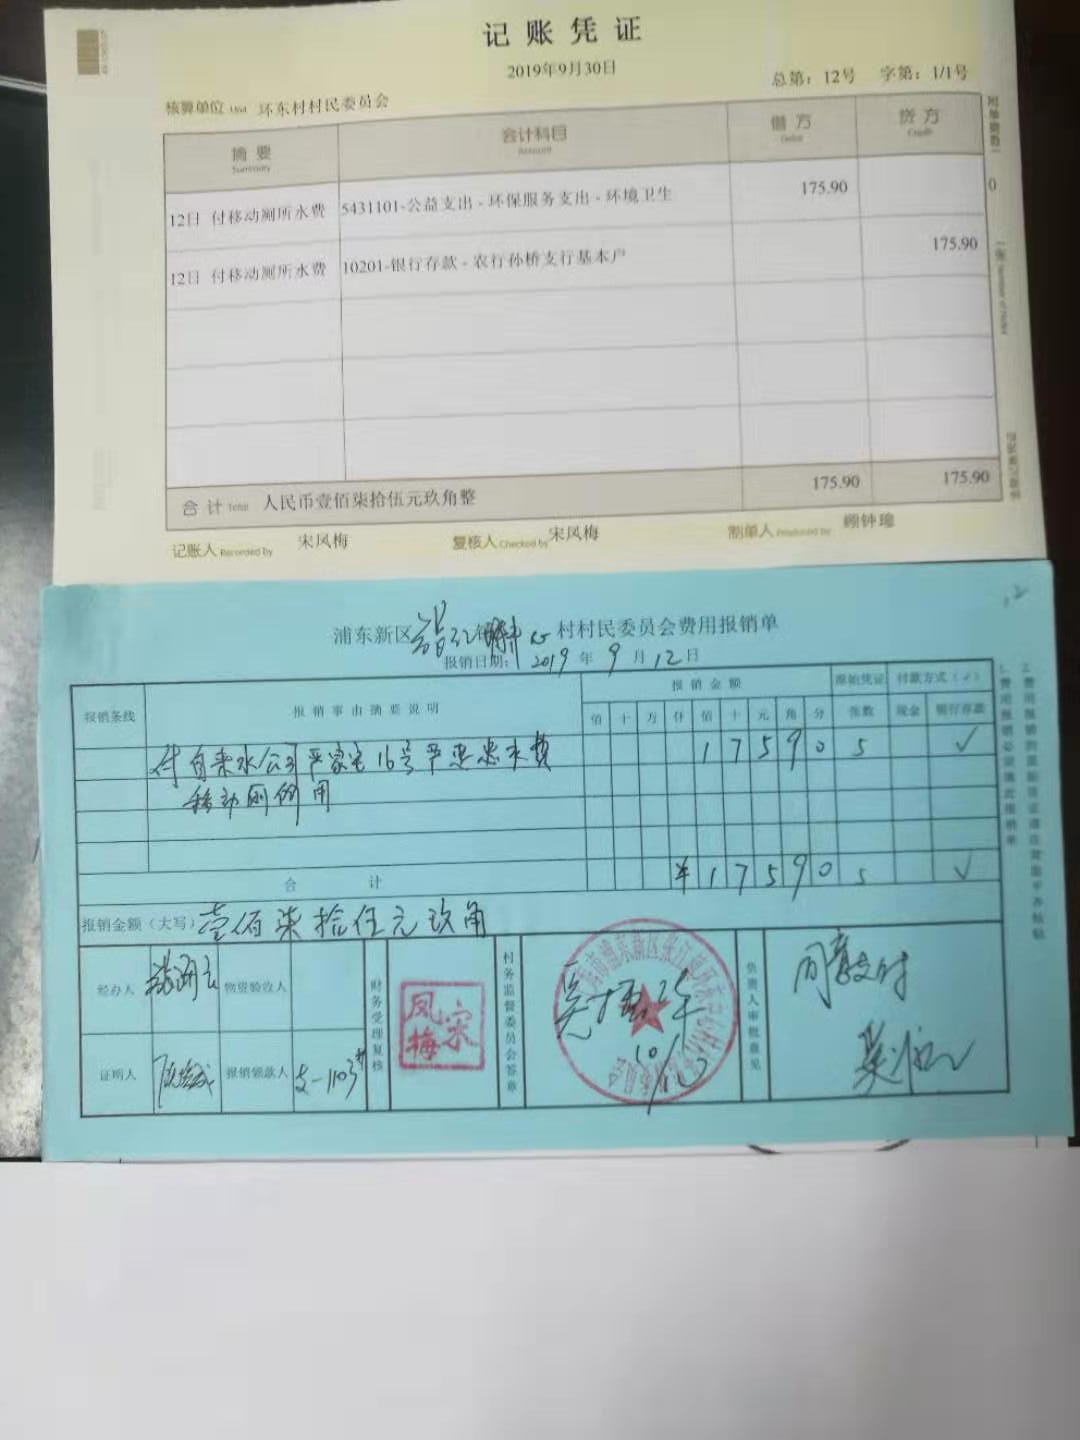 记账凭证
2019年9月30日
总第：12号 字第：1/1号
核算单位 Unit 环东村村民委员会
摘要 会计科目 借方 贷方
Summary Account Debit Credit
12日 付移动厕所水费 5431101-公益支出 - 环保服务支出 - 环境卫生 175.90
12日 付移动厕所水费 10201-银行存款 - 农行孙桥支行基本户 175.90
合计 Total 人民币壹佰柒拾伍元玖角整 175.90 175.90
记账人 Recorded by 宋凤梅 复核人 Checked by 宋凤梅 制单人 Produced by 顾钟瑾
浦东新区 村村民委员会费用报销单
报销日期： 2019 年 9 月 12 日
报销条线 报销事由摘要说明 报销金额 原始凭证 付款方式（✓）
佰 十 万 仟 佰 十 元 角 分 张数 现金 银行存款
付自来水公司严家宅16号严 水费 1 7 5 9 0 5 ✓
移动厕所用
合计 ¥ 1 7 5 9 0 5 ✓
报销金额（大写） 壹佰柒拾伍元玖角
经办人 物资验收人 财务受理复核 宋凤梅 村务监督委员会签章 负责人审批意见 同意支付
证明人 报销领款人 支-1103#